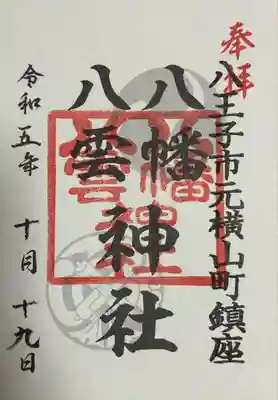 奉拝
八王子市元横山町鎮座
八幡
八雲
神社
令和五年 十月 十九日